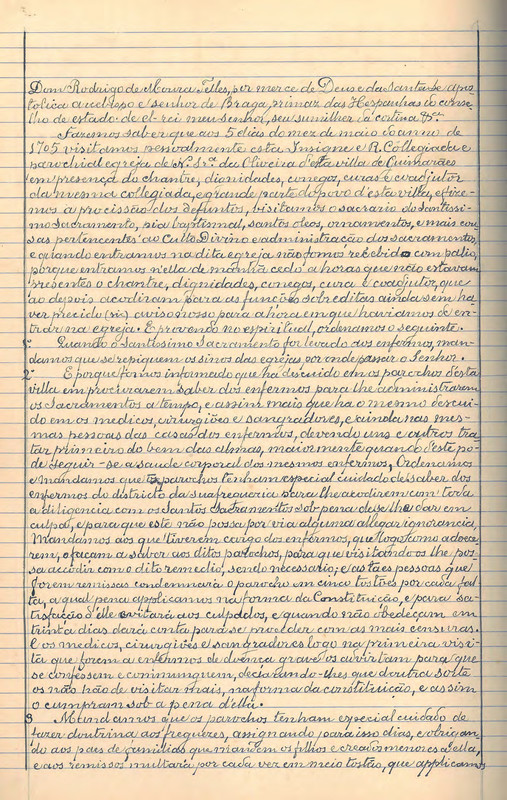 Dom Rodrigo de Moura Telles, por merce de Deus e da Santa Sé apos
tolica arcebispo e senhor de Braga, primaz das Hespanhas do conse-
lho de estado de el-rei meu senhor, seu sumilher da cortina &ª.
Fazemos saber que aos 5 dias do mez de maio do anno de
1705 visitamos pessoalmente esta Insigne e R. Collegiada e
parochial egreja de N. Srª da Oliveira d'esta villa de Guimarães
em presença do chantre, dignidades, conegos, curas e coadjutor
da mesma collegiada, e grande parte do povo d'esta villa, e fize-
mos a procissão dos defuntos, visitamos o sacrario do Santissi-
mo Sacramento, pia baptismal, santos oleos, ornamentos, e mais cou-
sas pertencentes ao Culto Divino e administração dos sacramentos,
e quando entramos na dita egreja não fomos recebido com palio,
porque entramos n'ella de manhã cedo a horas que não estavam
presentes o chantre, dignidades, conegos, cura e coadjutor, que
ao depois acodiram para as funcões sobreditas ainda sem ha
ver precido (sic) aviso nosso para a hora em que haviamos de en-
trar na egreja. E provendo no espiritual, ordenamos o seguinte.
1º Quando o Santissimo Sacramento fôr levado aos enfermos, man-
damos que se repiquem os sinos das egrejas, por onde passar o Senhor.
2º E porque fomos informado que ha descuido em os parochos d'esta
villa em procurarem saber dos enfermos para lhe administrarem
os Sacramentos a tempo, e assim mais que ha o mesmo descui-
do em os medicos, cirurgiões e sangradores, e ainda nas mes-
mas pessoas das casas dos enfermos, devendo uns e outros tra-
tar primeiro do bem das almas, maiormente quando d'este po-
de seguir-se a saude corporal dos mesmos enfermos, Ordenamos
e mandamos que os parochos tenham especial cuidado de saber dos
enfermos do districto da sua freguezia para lhe acodirem com toda
a diligencia com os Santos Sacramentos sob pena de se lhe dar em
culpa, e para que este não possa por via alguma allegar ignorancia,
Mandamos aos que tiverem cargo dos enfermos, que logo como adoece-
rem, o façam a saber aos ditos parochos, para que visitando-os lhe pos-
sa acodir com o dito remedio, sendo necessario, e as taes pessoas que
forem remissas condemnará o parocho em cinco tostões por cada fal-
ta, a qual pena applicamos na forma da Constituição, e para sa-
tisfação d'elle evitará aos culpados, e quando não obedeçam em
trinta dias dará conta para se proceder com as mais censuras.
E os medicos, cirurgiões e sangradores logo na primeira visi-
ta que forem a enfermos de doença grave os advirtam para que
se confessem e communguem, declarando-lhes que doutra sorte
os não hão de visitar mais, na forma da constituição, e assim
o cumpram sob a pena d'ella.
3 Mandamos que os parochos tenham especial cuidado de
fazer doutrina aos freguezes, assignando para isso dias, e obrigan-
do aos paes de familias que mandem os filhos e creados menores a ella,
e aos remissos multará por cada vez em meio tostão, que applicamos